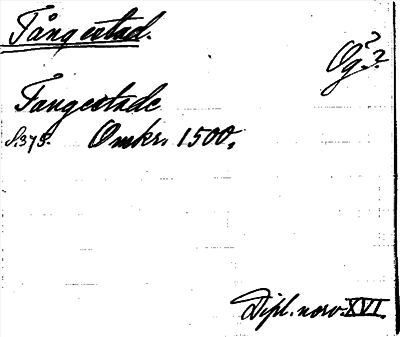 Tångestad.
Og.?
Tangestade
S.375. Omkr. 1500.
Dipl. norv. XVI